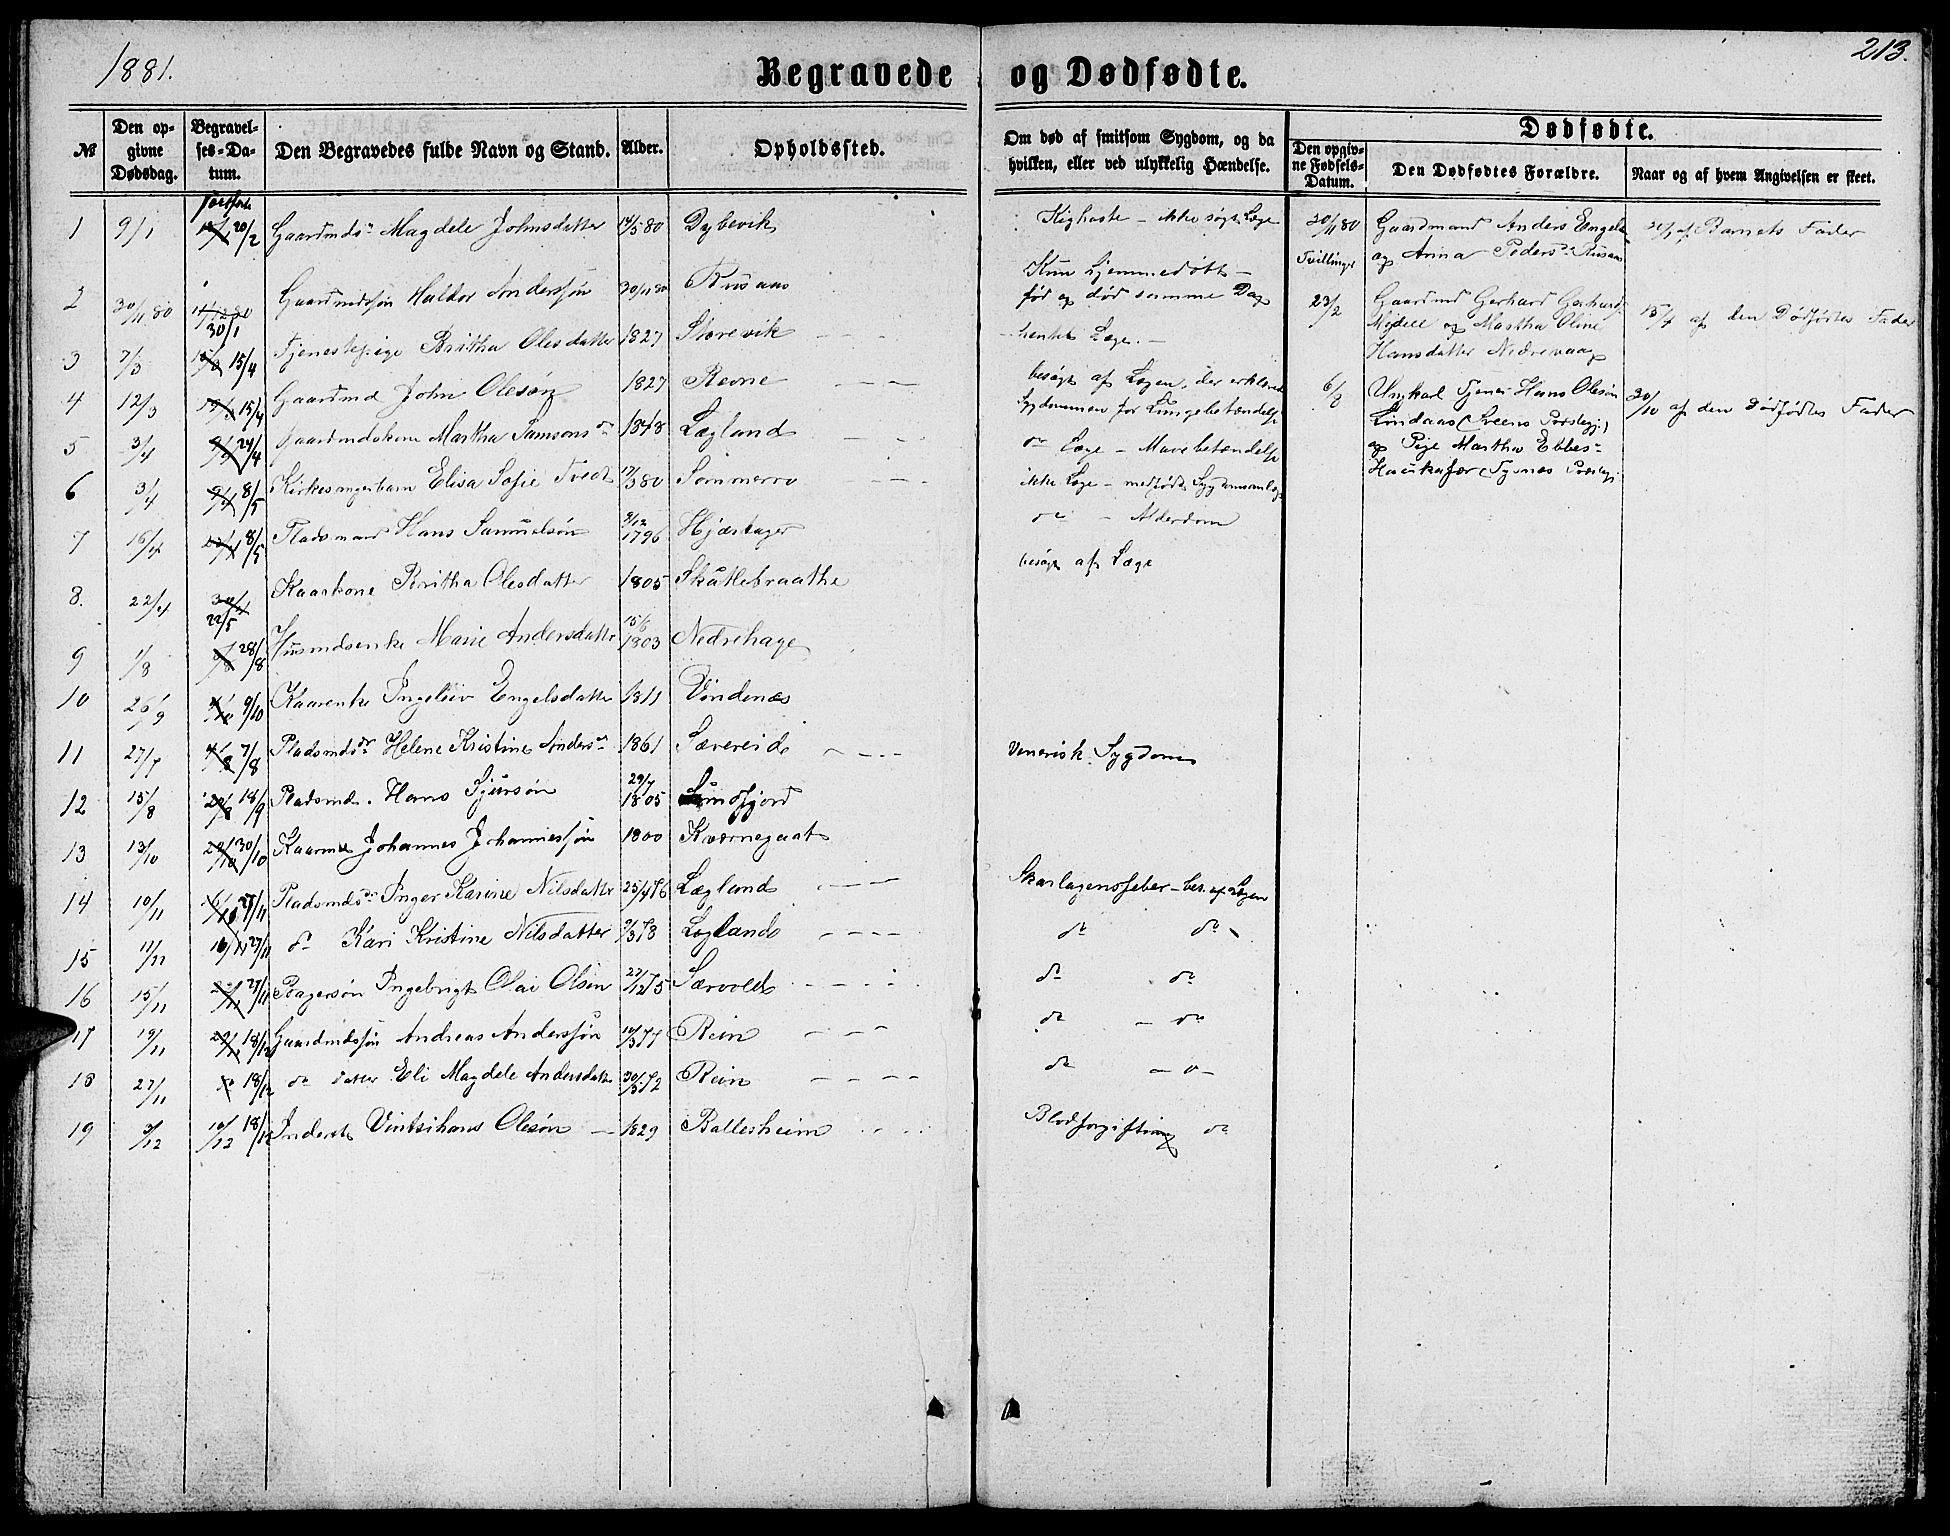 1881.
Begravede og Dødfødte.
213.
№
Den opgivne Dødsdag.
Begravelses-Datum.
Den Begravedes fulde Navn og Stand.
Alder.
Opholdssted.
Om død af smitsom Sygdom, og da hvilken, eller ved ulykkelig Hændelse.
Dødfødte.
Den opgivne Fødsels-Datum.
Den Dødfødtes Forældre.
Naar og af hvem Angivelsen er skeet.
1 9/1 20/2 Gaardmds Magdele Johnsdatter 14/5 80 Dybevik Kighoste - ikke søgt Læge
2 30/11 80 30/1 Gaardmdssøn Haldor Anderssøn 30/11 80 Rusaas Kun hjemmedøbt - fød og død samme Dag
3 7/3 15/4 Tjenestepige Britha Olesdatter 1827 Storevik hentet Læge. -
4 12/3 15/4 Gaardmd John Olesøn 1827 Revne besøgt af Lægen, der erklærede Sygdommen for Lungebetændelse
5 3/4 24/4 Gaardmdskone Martha Samsonsdr 1848 Lægland do Læge - Mavebetændelse
6 3/4 8/5 Kirkesangerbarn Elisa Sofie Tvedt 17/3 80 Sommerro ikke Læge - medfødt
7 16/4 8/5 Pladsmand Hans Samuelsøn 9/12 1796 Hjæstager do - Alderdom
8. 22/4 22/5 Kaarkone Britha Olesdatter 1805 Skutlebraathe besøgt af Læge
9 1/8 28/8 Husmdsenke Marie Andersdatter 15/6 1803 Nedrehage
10 26/9 9/10 Kaarenke Ingeleiv Engelsdatter 1811 Vindenæs
11 27/7 7/8 Pladsmdsdr Helene Kristine Andersdr 1861 Særereide Venerisk Sygdom
12 15/8 18/9 Pladsmd. Hans Sjursøn 29/7 1805
13 13/10 30/10 Kaarmd Johannes Johannessøn 1800 Kværnegaat
14 10/11 27/11 Pladsmdsdr Inger Karine Nilsdatter 25/4 76 Lægland Skarlagensfeber - bes. af Lægen
15 11/11 16/11 27/11 do Kari Kristine Nilsdatter 9/3 78 Lægland do do
16 15/11 27/11 Ingebrigt Olai Olsen 27/12 75 Særvold do do
17 19/11 18/12 Gaardmdssøn Andreas Anderssøn 10/3 77 Rein do - do
18 27/11 18/12 do datter Eli Magdele Andersdatter 30/3 72 Rein do - o -
19 3/12 10/12 18/12 Inderste Olesøn 1829 Ballesheim Blodforgiftning do
20/11 80 Tvillinger
Gaardmand Anders Engels
og Anna Pedersdr Rusaas
af Barnets Fader
23/2
Gaardmd Gerhard Gerhards
og Martha Oline
Hansdatter Nedrevaag
15/4 af den Dødfødtes Fader
6/8
Ungkarl Tjener Hans Olesøn
Lindaas (Sveens Præstegj.)
og Pige Martha Ebbesdr
(Tysnæs Præstegj.
30/10 af den Dødfødtes Fader